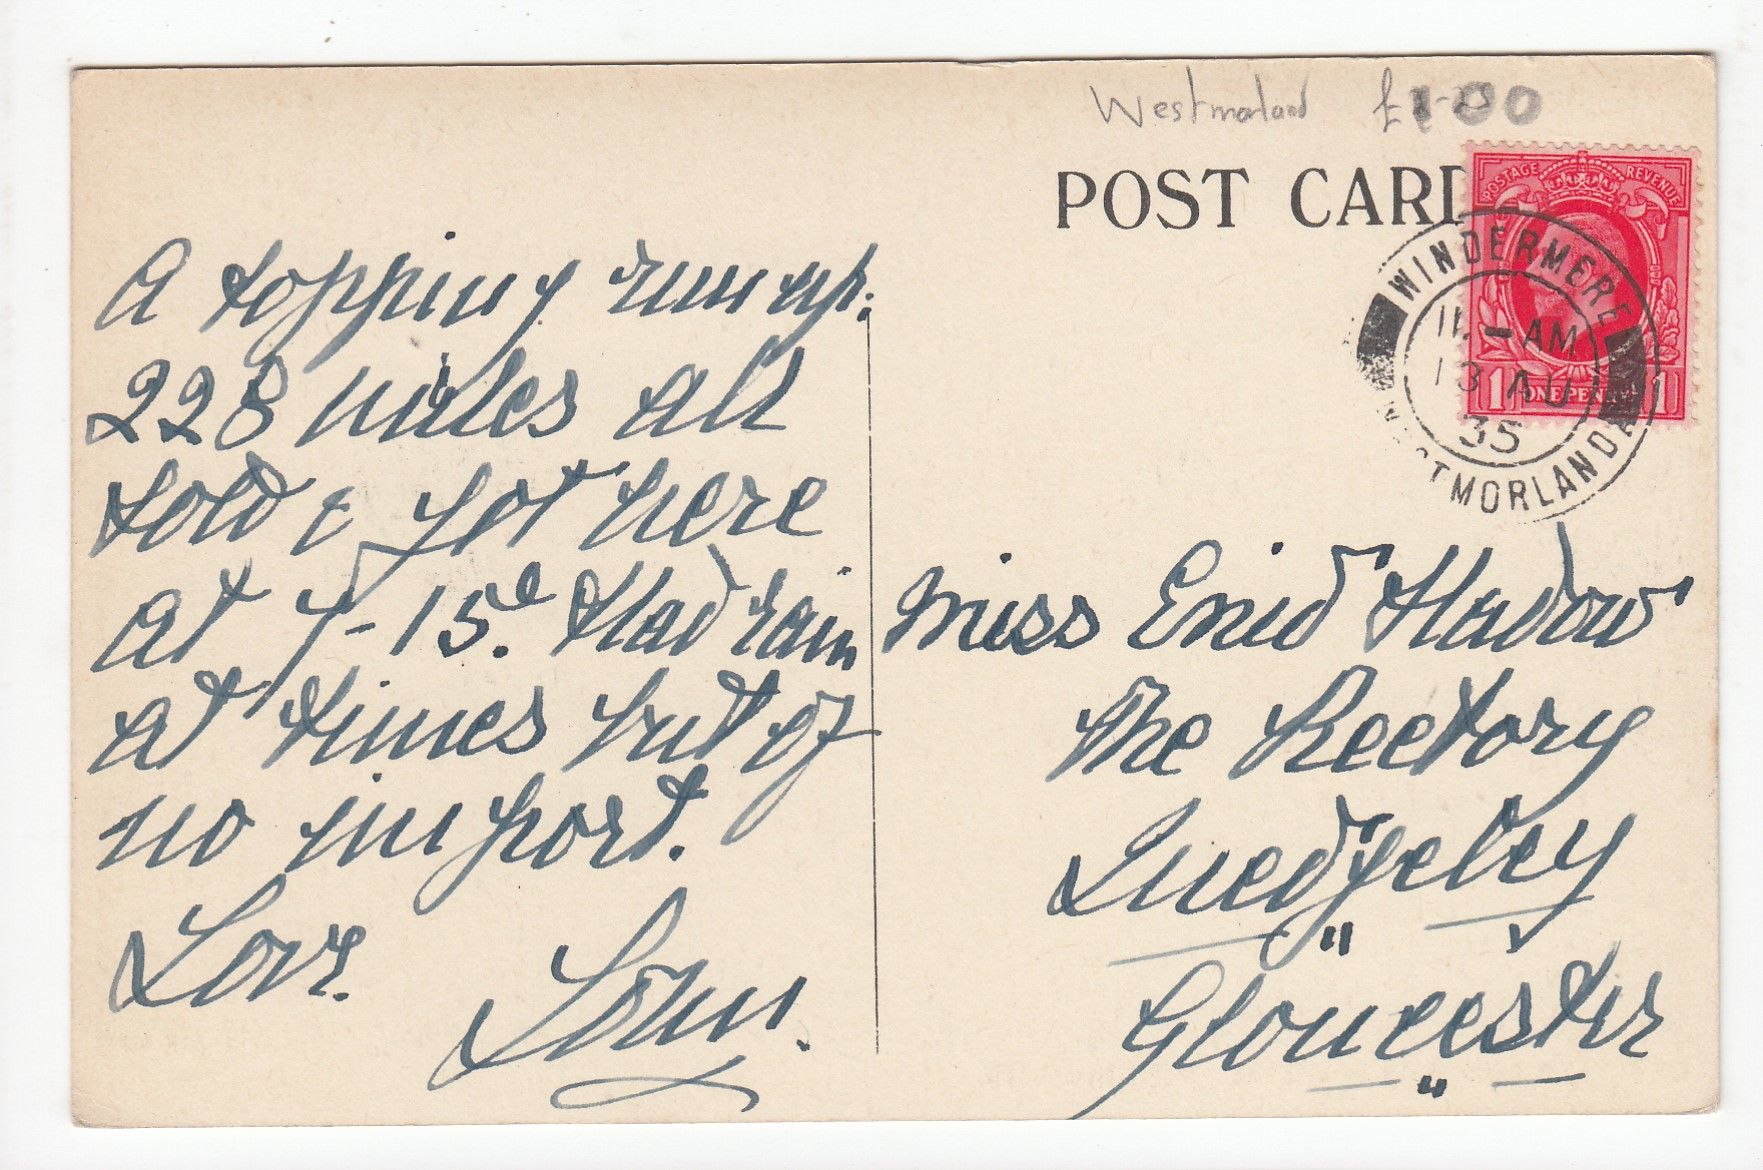 Westmorland £1-00
POST CARD
POSTAGE REVENUE
ONE PENNY
WINDERMERE
11 - AM
13 AU
35
WESTMORLAND
A topping run up:
228 miles all
told & got here
at 7-15. Had rain
at times but of
no import.
Love.
John.
Miss Enid Hadow
The Rectory
Quedgeley
Gloucester